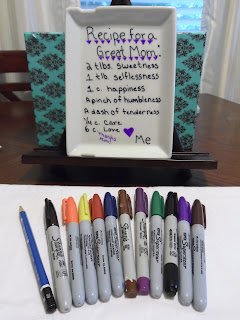 Recipe for a
Great Mom:
2 tlbs. sweetness
1 tlb. selflessness
1 c. happiness
A pinch of humbleness
A dash of tenderness
1/4 c. Care
6 c. Love
Me
Sharpie
Sharpie
Sharpie
Sharpie